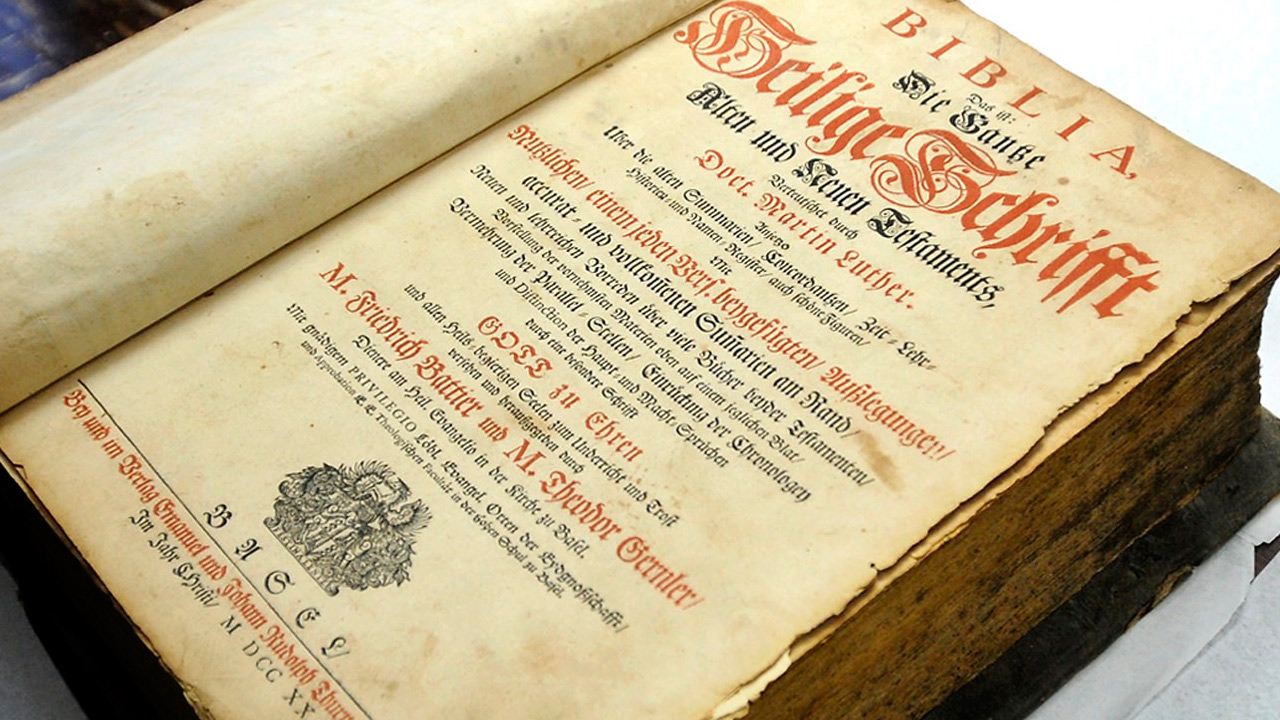 BIBLIA,
Das ist:
Die Gantze
Heilige Schrifft
Alten und Neuen Testaments,
Verteutschet durch
Doct. Martin Luther.
Anjetzo
Uber die alten Summarien/ Concordantzen/ Zeit- Lehr-
Historien- und Namen-Register/ auch schöne Figuren/
Mit
Nutzlichen/ einem jeden Vers beygefügten/ Außlegungen/
accurat- und vollkom̃enen Sum̃arien am Rand/
Neuen und lehrreichen Vorreden über viele Bücher beyder Testamenten/
Vorstellung der vornehmsten Materien oben auf einem jeglichen Blat/
Vermehrung der Parallel-Stellen/ Einruckung der Chronologey
und Distinction der Haupt- und Macht-Sprüchen
durch eine besondere Schrifft
GOTT zu Ehren
und allen Heils-begierigen Seelen zum Underricht und Trost
versehen und heraußgegeben durch
M. Friedrich Battier und M. Theodor Gernler/
Diener am Heil. Evangelio in der Kirche zu Basel.
Mit gnädigem PRIVILEGIO Löbl. Evangel. Orten der Eydgnoßschafft/
und Approbation E. E. Theologischen Facultät in der hohen Schul zu Basel.
BASEL/
Bey und im Verlag Emanuel und Johann Rudolph Thurn
Im Jahr CHristi/ M DCC XX